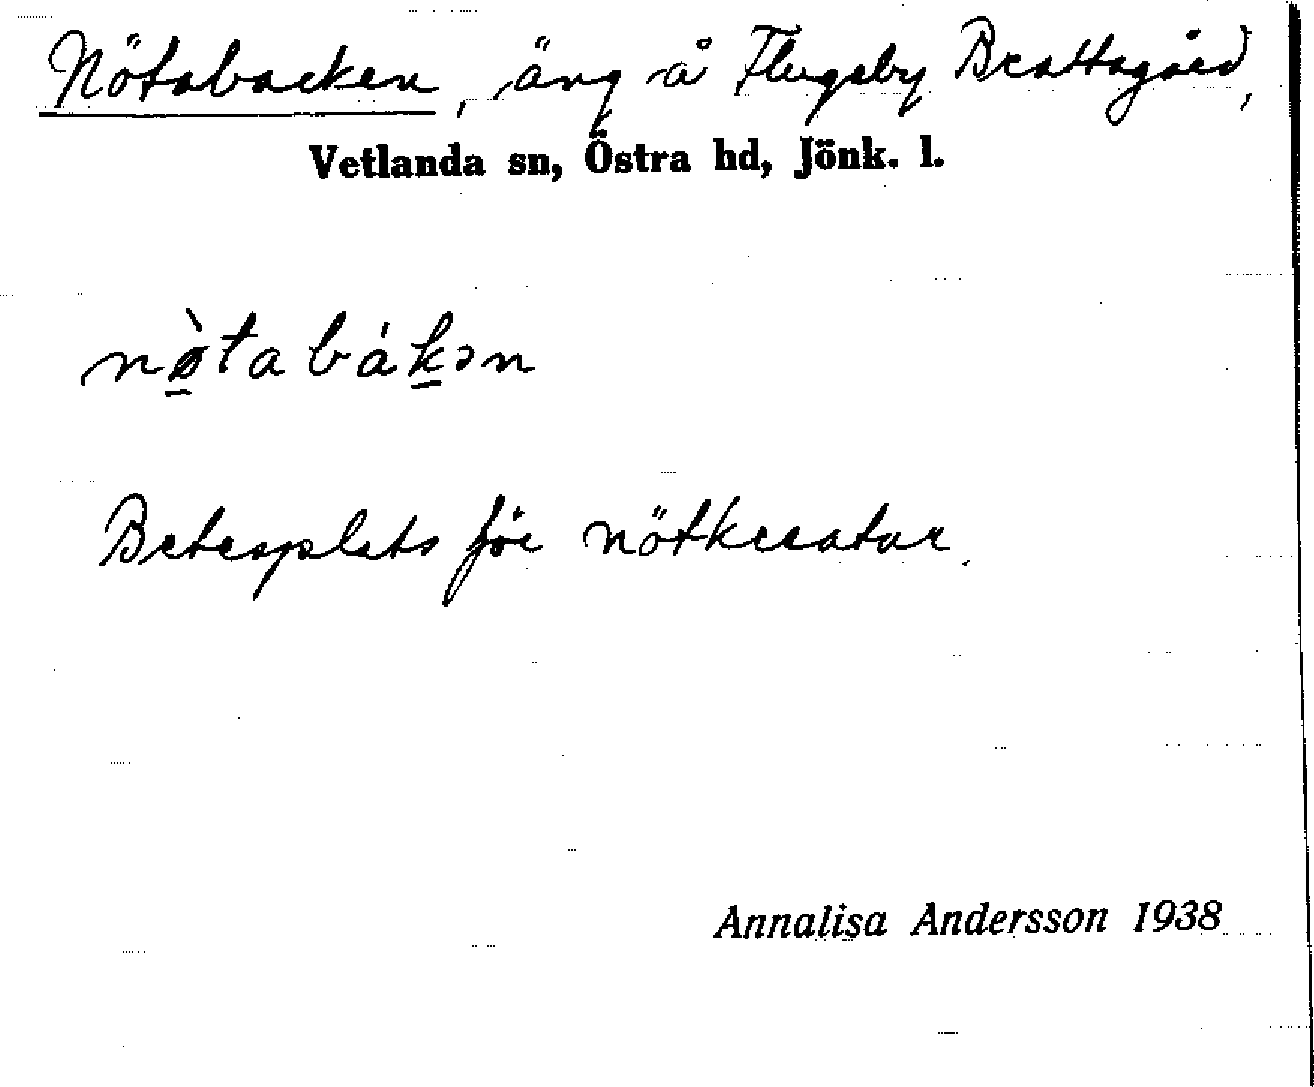 Nötabacken, äng å Flugeby Brattagård,
Vetlanda sn, Östra hd, Jönk. l.
nø̠̀tabák̠ən
Betesplats för nötkreatur.
Annalisa Andersson 1938